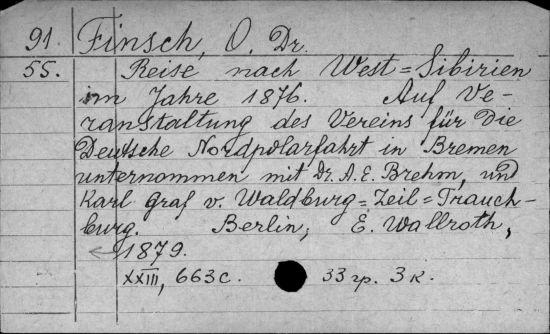 91. Finsch, O. Dr.
55. Reise nach West=Sibirien
im Jahre 1876. Auf Ve-
ranstaltung des Vereins für die
Deutsche Nordpolarfahrt in Bremen
unternommen mit Dr. A. E. Brehm, und
Karl Graf v. Waldburg=Zeil=Trauch-
burg. Berlin, E. Wallroth,
1879.
XXIII, 663 с. 33 гр. 3 к.